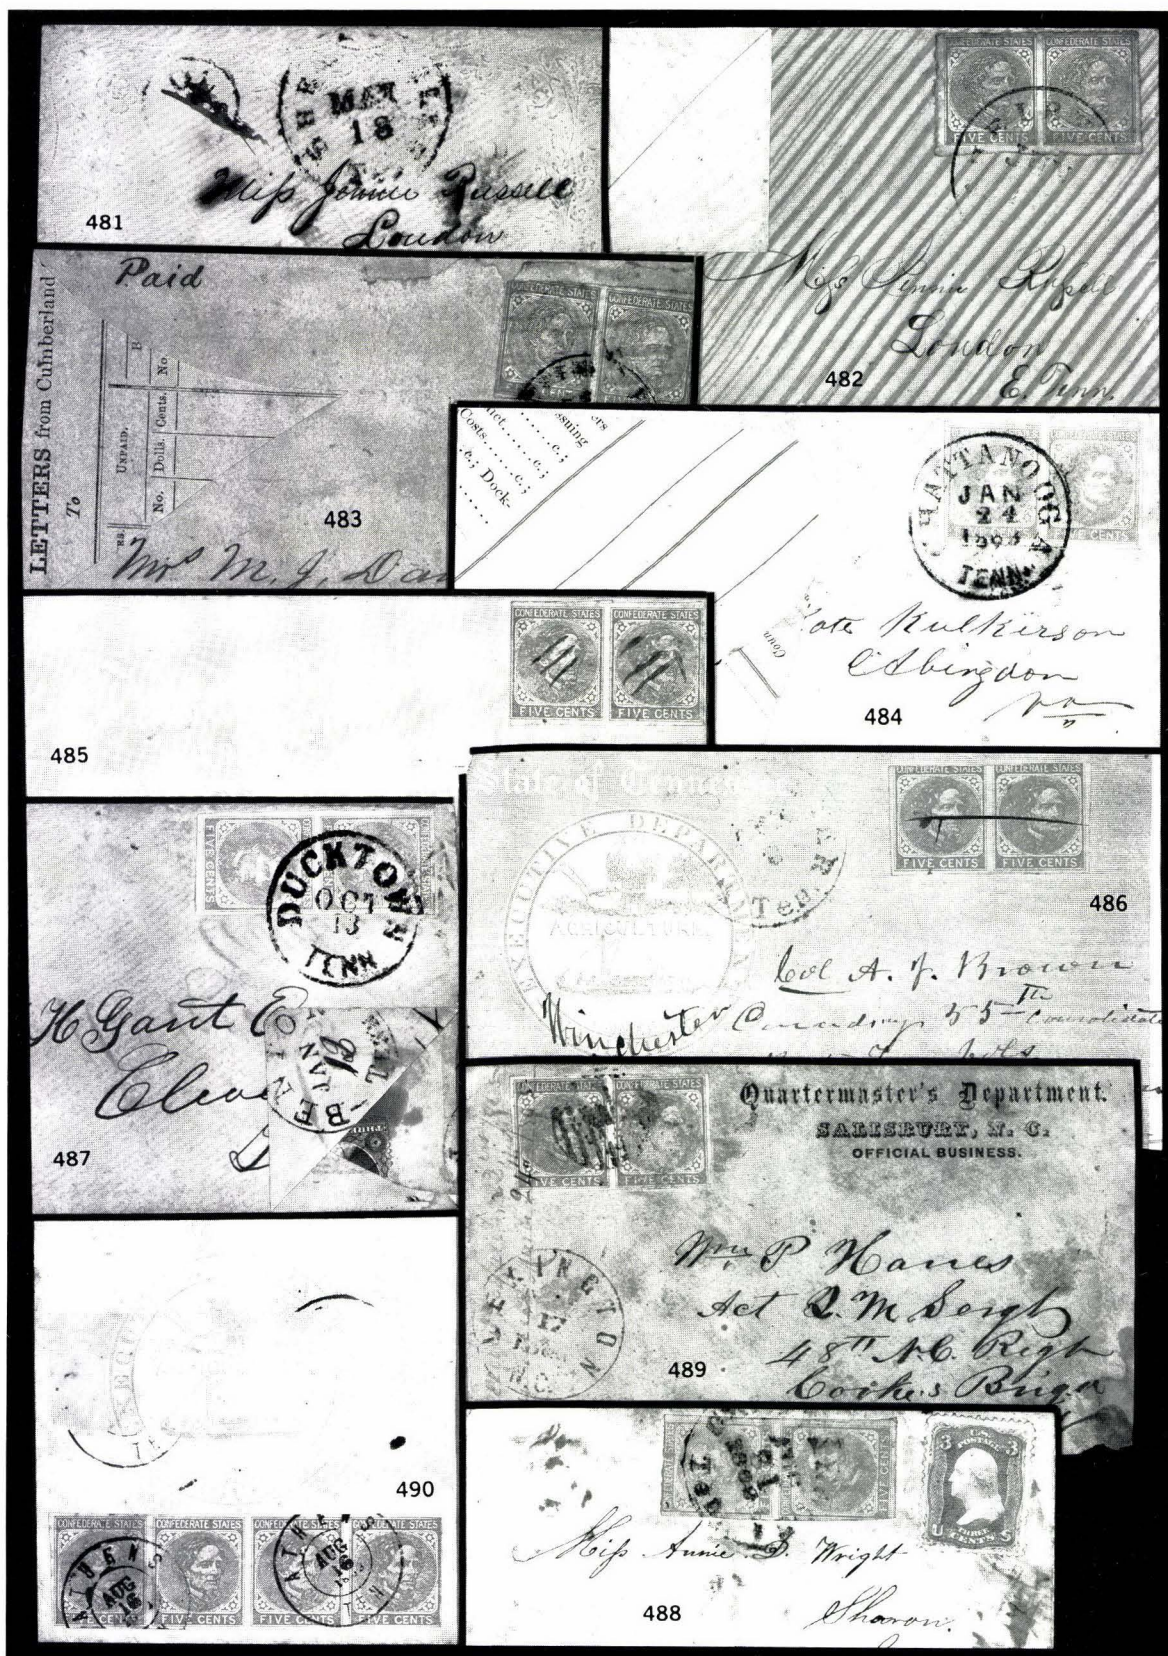 MAY
18
Miss Jennie Russell
Loudon
481
CONFEDERATE STATES
CONFEDERATE STATES
FIVE CENTS
FIVE CENTS
Miss Jennie Russell
Loudon
E. Tenn.
482
LETTERS from Cumberland
To
Paid
UNPAID.
No.
Dolls.
Cents.
No
B
RS.
CONFEDERATE STATES
CONFEDERATE STATES
Mrs M. J. Dan
483
Costs
Dock-
suing
ers
Conn
CHATTANOOGA
JAN
24
TENN.
FIVE CENTS
ate Kulkirson
Abingdon
Va
484
CONFEDERATE STATES
CONFEDERATE STATES
FIVE CENTS
FIVE CENTS
485
State of Tennessee
EXECUTIVE DEPARTMENT
AGRICULTURE
Ten.
CONFEDERATE STATES
CONFEDERATE STATES
FIVE CENTS
FIVE CENTS
486
Col A. J. Brown
Winchester
55th Consolidate
FIVE CENTS
DUCKTOWN
OCT
13
TENN
H Gant E
Cleve
JAN
487
CONFEDERATE STATES
CONFEDERATE STATES
FIVE CENTS
FIVE CENTS
Quartermaster's Department.
SALISBURY, N. C.
OFFICIAL BUSINESS.
LEXINGTON
17
N.C.
Wm P Hanes
Act Q. M Sergt
48th N.C. Regt
Cookes Briga
489
490
CONFEDERATE STATES
CONFEDERATE STATES
CONFEDERATE STATES
CONFEDERATE STATES
ATHEN
AUG
16
ATHENS
AUG
16
FIVE CENTS
FIVE CENTS
FIVE CENTS
FIVE CENTS
FIVE CENTS
3
U.S.
POSTAGE
3
THREE
CENTS
U
S
Miss Annie D. Wright
Sharon.
488